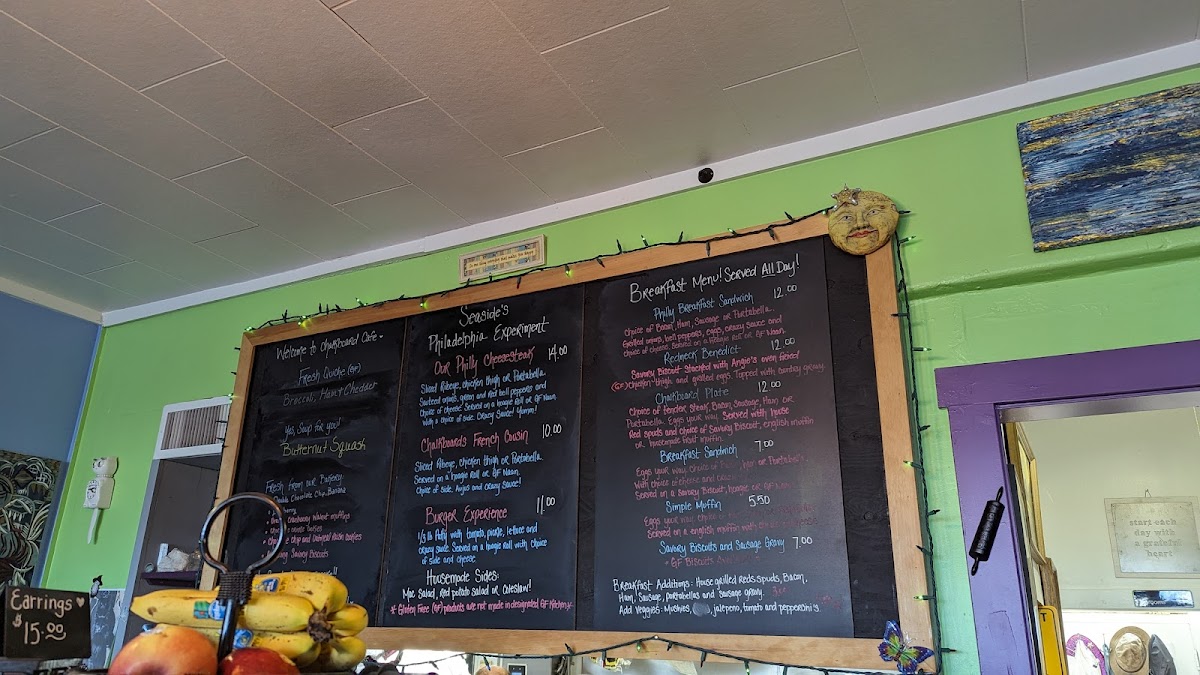 Welcome to Chalkboard Cafe
Fresh Quiche (GF)
Broccoli, Ham & Cheddar
Yes, Soup for you!
Butternut Squash
Fresh from our Bakery
Double Chocolate Chip, Banana
Orange Cranberry Walnut muffins
chip and Oatmeal Raisin cookies
Savory Biscuits
Seaside's
Philadelphia Experiment
Our Philly Cheesesteak 14.00
Sliced Ribeye, chicken thigh or Portabella.
Sauteed onions, green and Red bell peppers and
Choice of cheese. Served on a hoagie Roll or GF Naan.
With a choice of side. Crazy Sauce!
Chalkboards French Cousin 10.00
Sliced Ribeye, chicken thigh or Portabella.
Served on a hoagie Roll or GF Naan.
Choice of side. Aujus and crazy Sauce!
Burger Experience 11.00
1/3 lb Patty with tomato, pickle, lettuce and
crazy sauce. Served on a hoagie roll with choice
of side and cheese
Housemade Sides:
Mac Salad, Red potato salad or coleslaw!
* Gluten Free (GF) products are not made in designated GF Kitchen
Breakfast Menu! Served All Day!
Philly Breakfast Sandwich 12.00
Choice of Bacon, Ham, Sausage or Portabella.
Grilled onions, bell peppers, eggs, crazy sauce and
choice of cheese. Served on a Hoagie Roll or GF Naan.
Redneck Benedict 12.00
Savory Biscuit stacked with Angie's oven fried
(GF) chicken thigh and grilled eggs. Topped with Cowboy gravy.
Chalkboard Plate 12.00
Choice of tender steak, Bacon, Sausage, Ham or
Portabella. Eggs your way. Served with house
Red spuds and choice of Savory Biscuit, english muffin
or housemade fruit muffin.
Breakfast Sandwich 7.00
Eggs your way. Choice of or Portabella.
with choice of cheese and crazy
Served on a Savory Biscuit, hoagie or GF Naan
Simple Muffin 5.50
Eggs your way
Served on a english muffin with
Savory Biscuits and Sausage Gravy 7.00
* GF Biscuits
Breakfast Additions: House grilled Reds spuds, Bacon,
Ham, Sausage, portabellas and Sausage gravy.
Add Veggies: Mushies, jalepeno, tomato and pepperoni's.
Earrings
$15.00
start each
day with
a grateful
heart